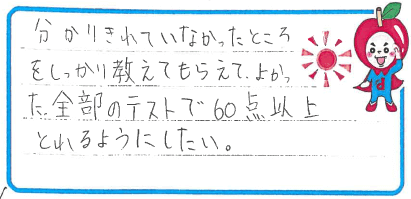 分かりきれていなかったところ
をしっかり教えてもらえて、よかっ
た。全部のテストで60点以上
とれるようにしたい。